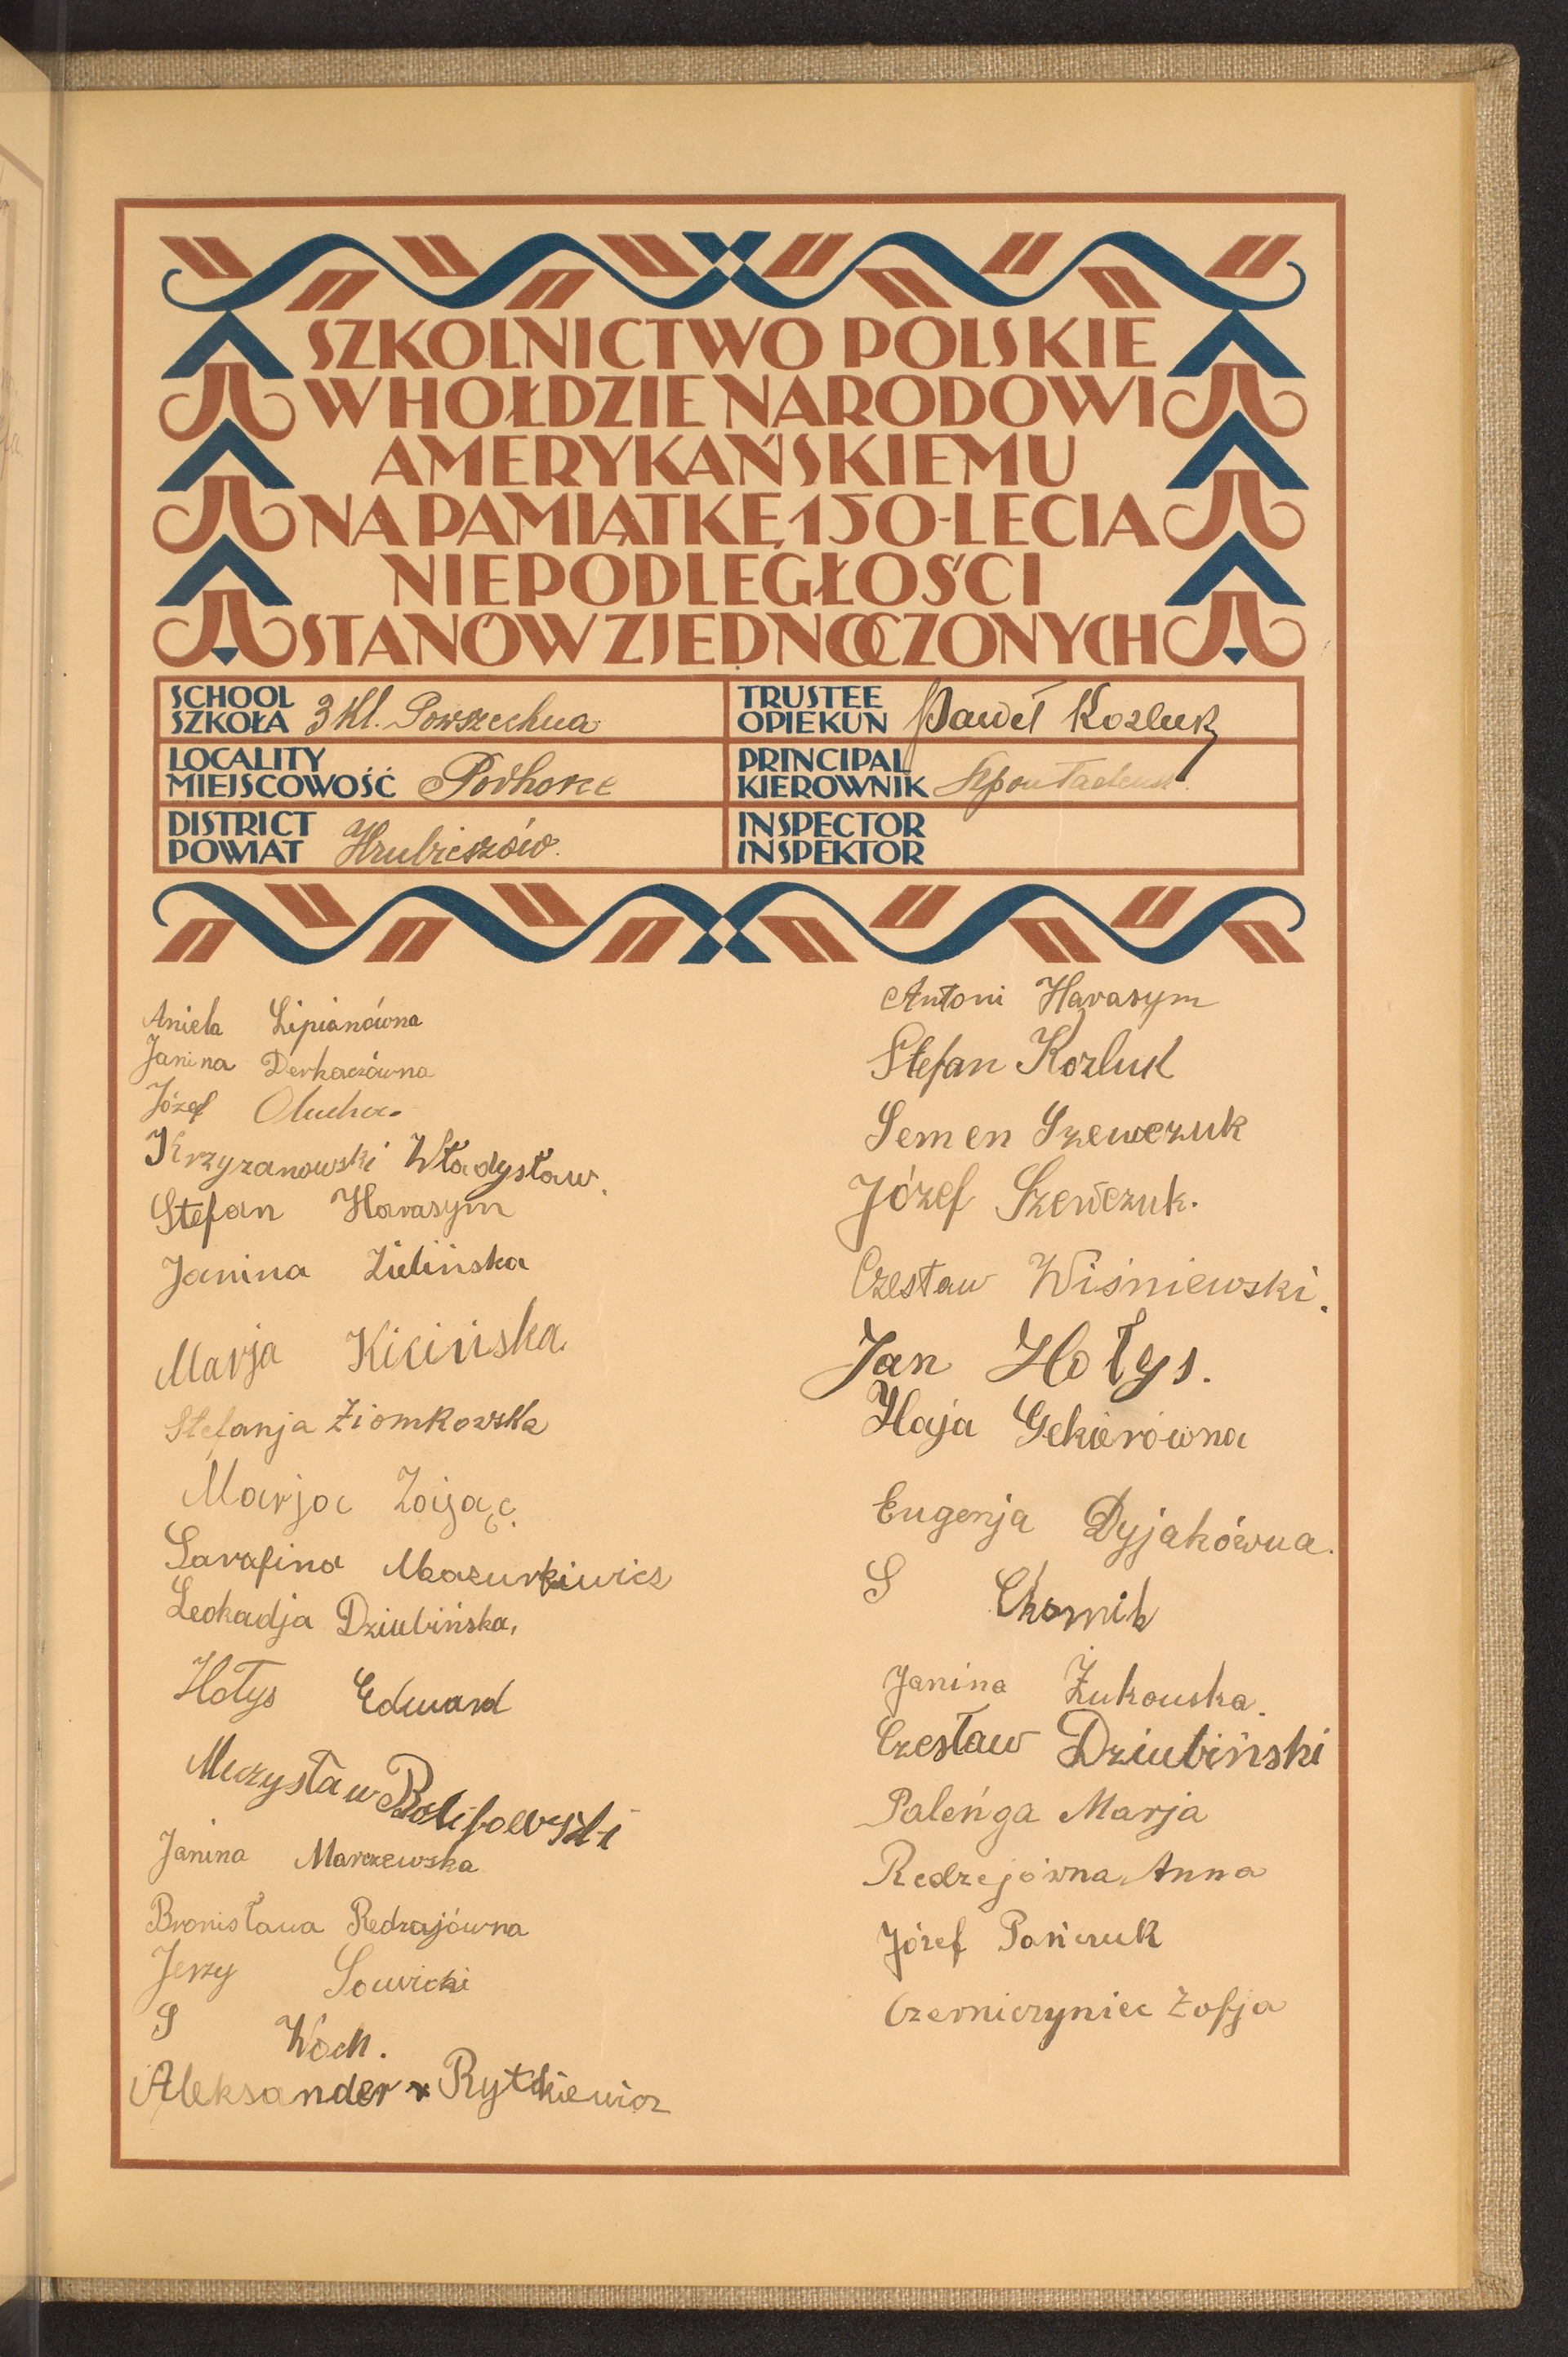 SZKOLNICTWO POLSKIE
W HOŁDZIE NARODOWI
AMERYKAŃSKIEMU
NA PAMIĄTKĘ 150-LECIA
NIEPODLEGŁOŚCI
STANÓW ZJEDNOCZONYCH
SCHOOL
SZKOŁA 3 kl. Powszechna
LOCALITY
MIEJSCOWOŚĆ Podhorce
DISTRICT
POWIAT Hrubieszów.
TRUSTEE
OPIEKUN Paweł Kozluk
PRINCIPAL
KIEROWNIK Tadeusz
INSPECTOR
INSPEKTOR
Aniela Lipianówna
Janina Derkaczówna
Józef Olucha.
Krzyzanowski Władysław.
Stefan Harasym
Janina Zielińska
Marja Kicińska
Stefanja Ziomkowska
Marja Zając.
Sarafina Mazurkiwicz
Leokadja Dziubińska,
Hołys Edward
Janina Marczewska
Bronisława Redzajówna
Jerzy Sawicki
S Woch.
Aleksander Rytkiewicz
Antoni Harasym
Stefan Kozluk
Semen Szewczuk
Józef Szewczuk.
Czesław Wiśniewski.
Jan Hołys.
Haja Gekierówna
Eugenja Dyjakówna.
S Chornik
Janina Żukowska.
Czesław Dziubiński
Paleńga Marja
Redzejówna Anna
Józef Pańczuk
Czerniczyniec Zofja